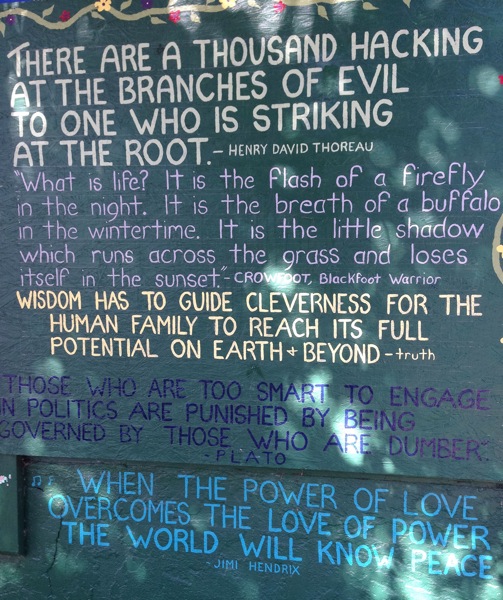 THERE ARE A THOUSAND HACKING
AT THE BRANCHES OF EVIL
TO ONE WHO IS STRIKING
AT THE ROOT. - HENRY DAVID THOREAU
"What is life? It is the flash of a firefly
in the night. It is the breath of a buffalo
in the wintertime. It is the little shadow
which runs across the grass and loses
itself in the sunset." - CROWFOOT, Blackfoot Warrior
WISDOM HAS TO GUIDE CLEVERNESS FOR THE
HUMAN FAMILY TO REACH ITS FULL
POTENTIAL ON EARTH + BEYOND - truth
THOSE WHO ARE TOO SMART TO ENGAGE
IN POLITICS ARE PUNISHED BY BEING
GOVERNED BY THOSE WHO ARE DUMBER.
- PLATO
WHEN THE POWER OF LOVE
OVERCOMES THE LOVE OF POWER
THE WORLD WILL KNOW PEACE
- JIMI HENDRIX